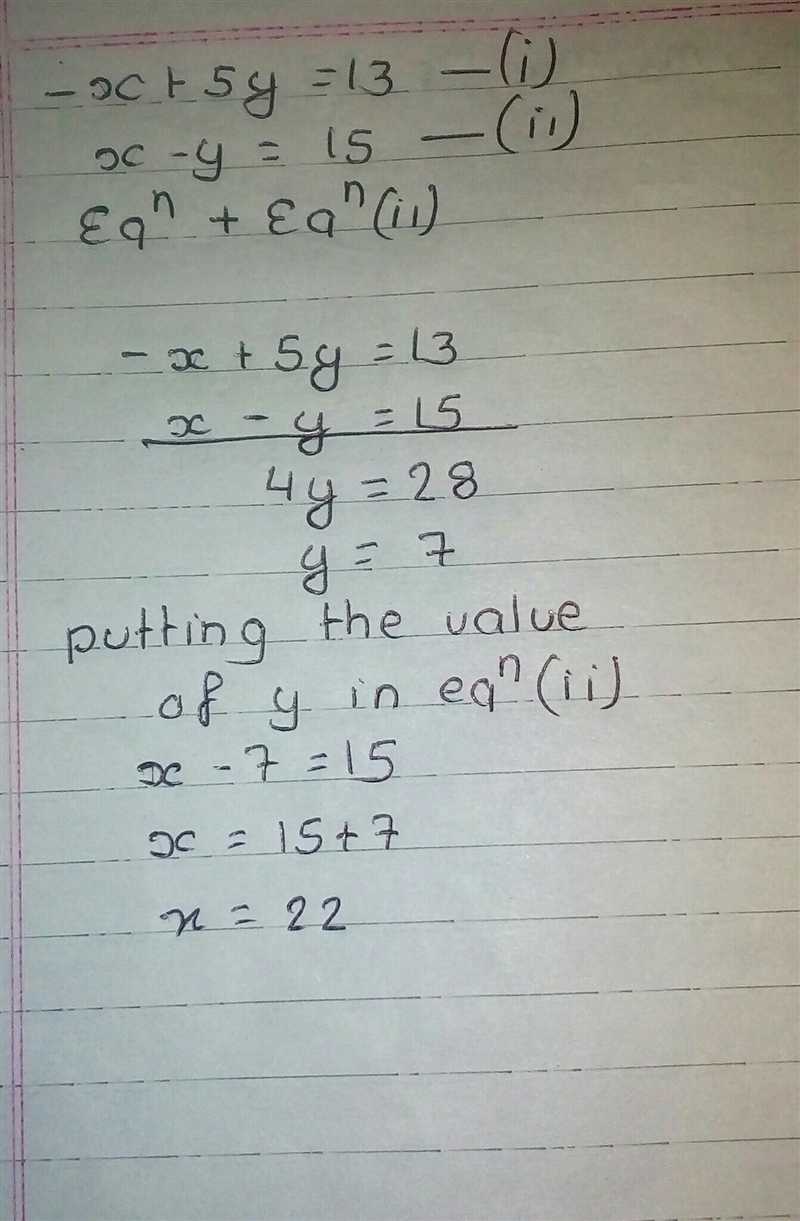 -x + 5y = 13 — (i)
x - y = 15 — (ii)
Eqⁿ + Eqⁿ (ii)
- x + 5y = 13
x - y = 15
4y = 28
y = 7
putting the value
of y in eqⁿ (ii)
x - 7 = 15
x = 15 + 7
x = 22